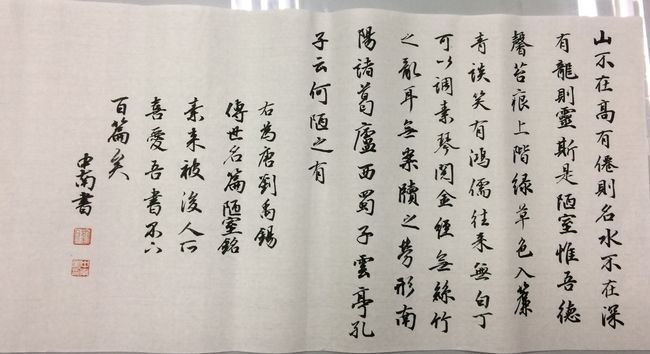 山不在高有僊則名水不在深
有龍則靈斯是陋室惟吾德
馨苔痕上階緑草色入簾
青談笑有鸿儒往来無白丁
可以调素琴阅金經無絲竹
之亂耳無案牘之勞形南
陽諸葛廬西蜀子雲亭孔
子云何陋之有
右為唐劉禹錫
傳世名篇陋室銘
素来被後人所
喜愛吾書不下
百篇矣
南書